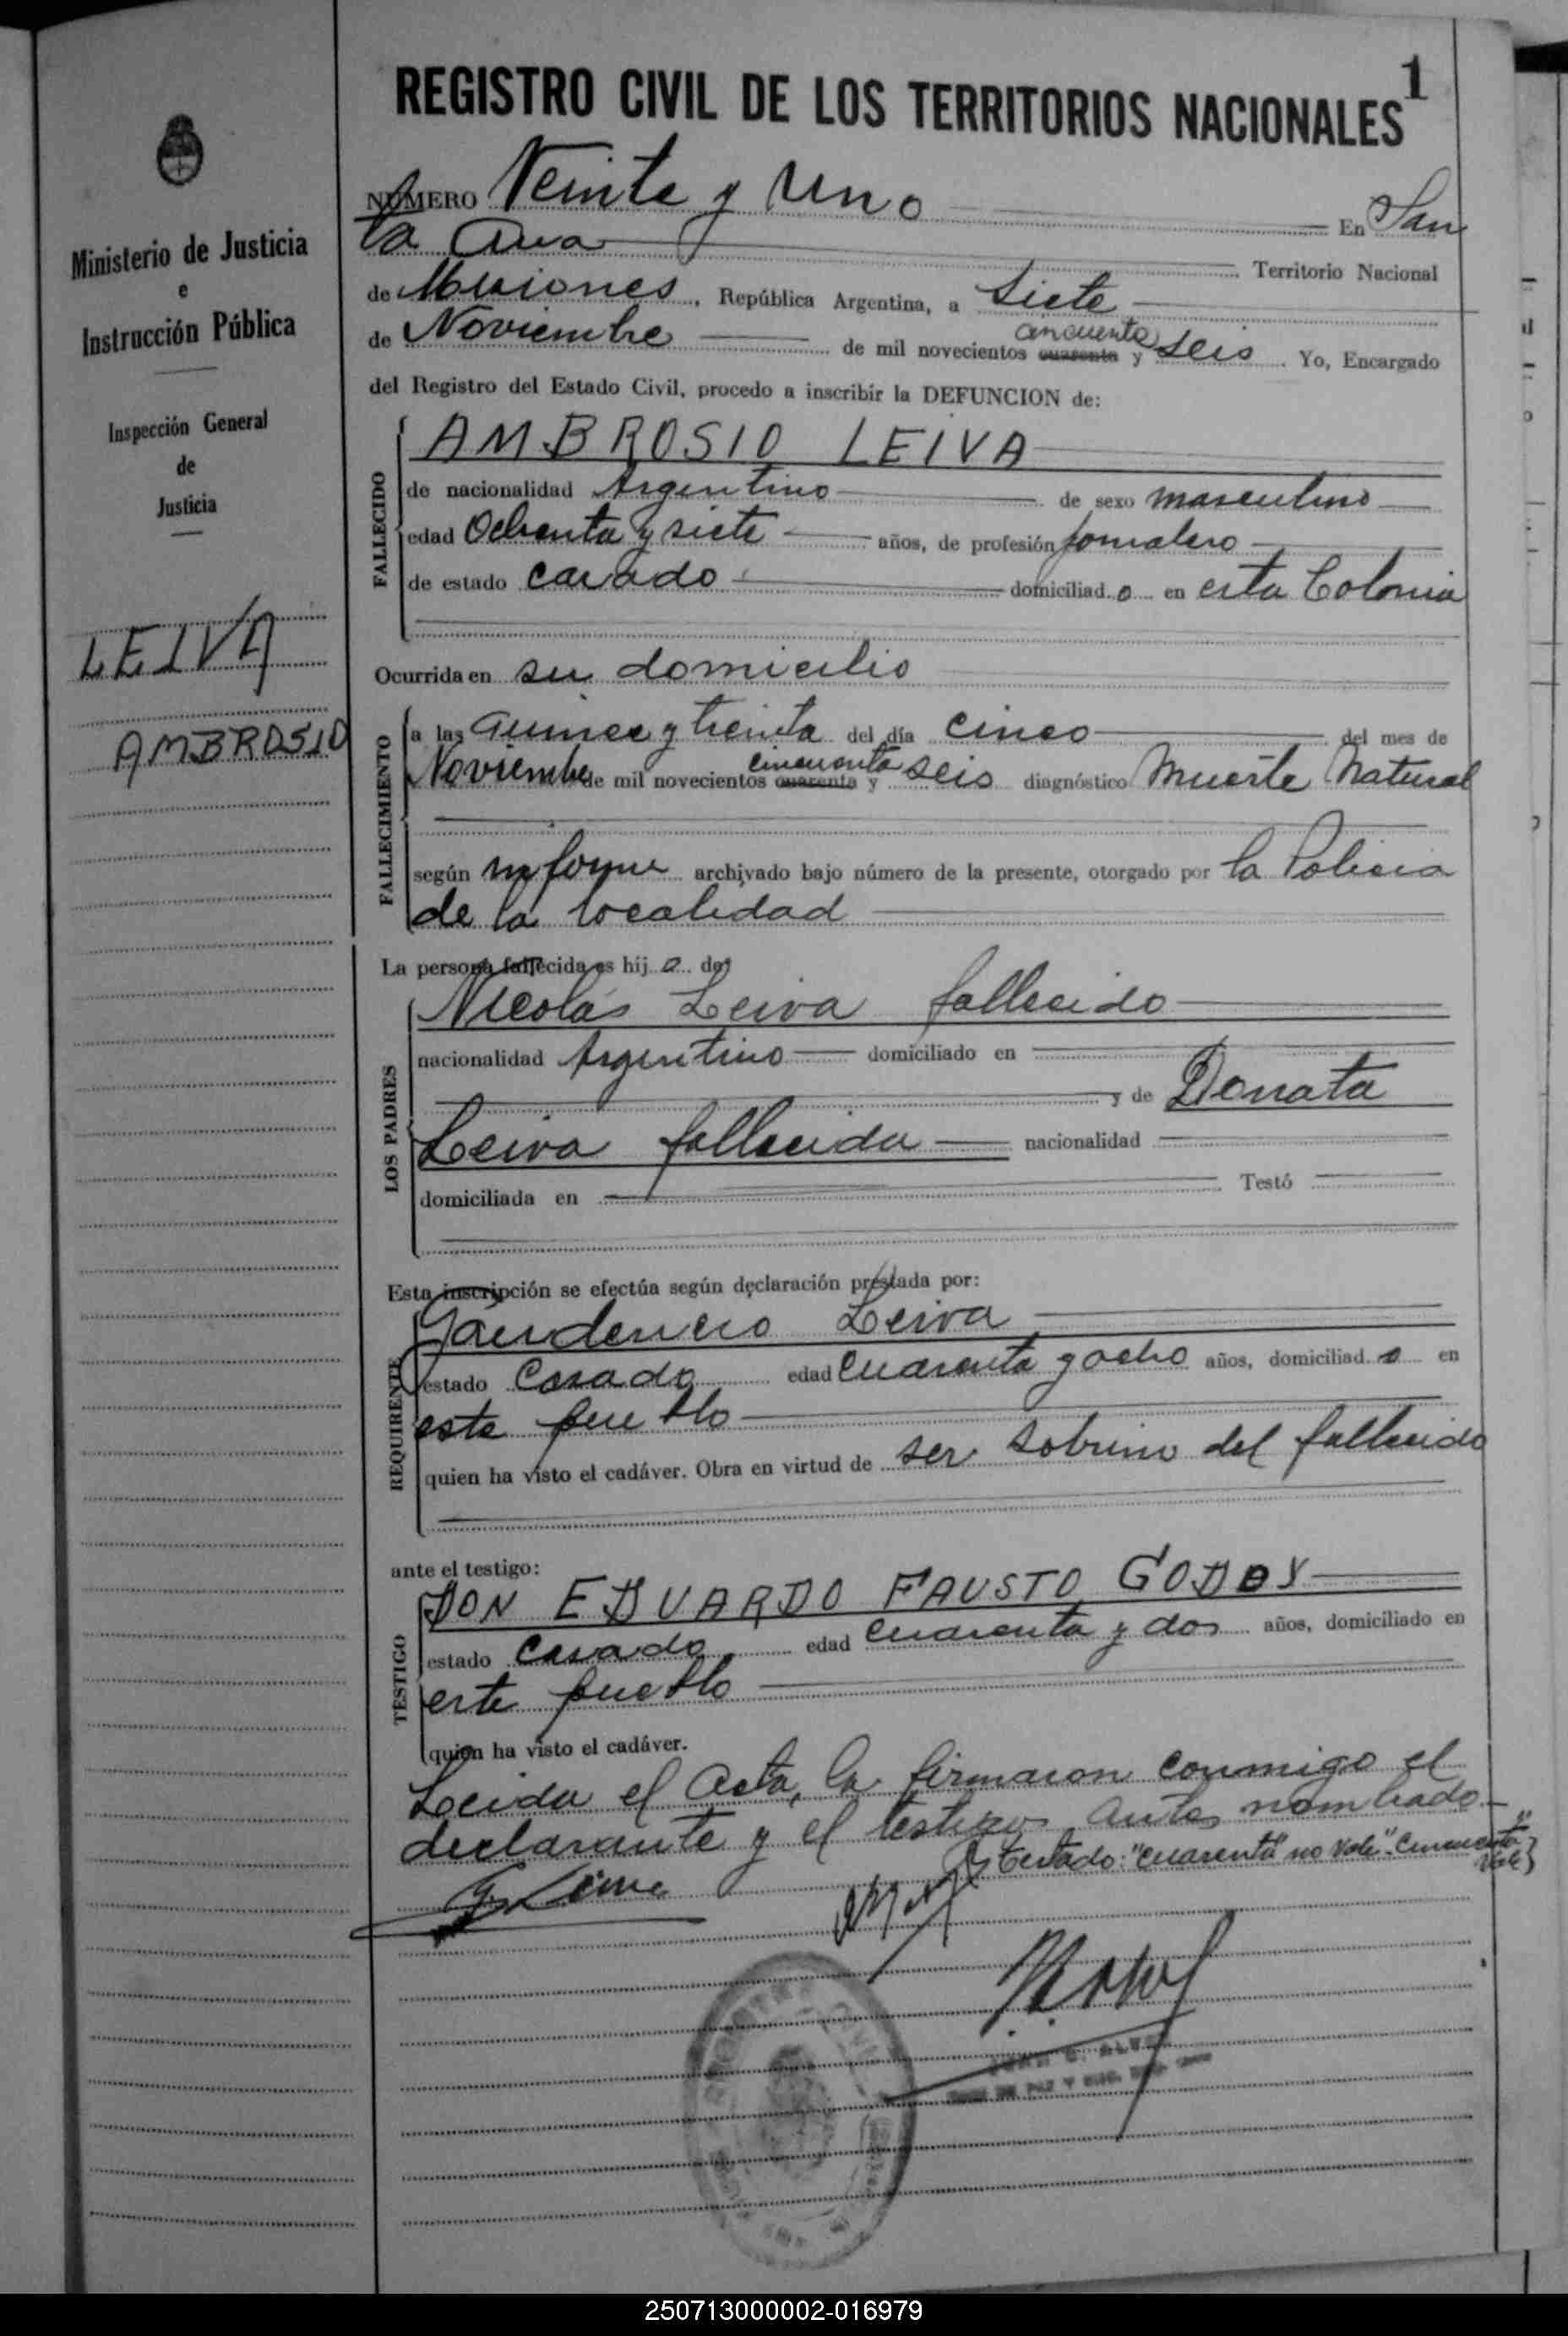 REGISTRO CIVIL DE LOS TERRITORIOS NACIONALES
1
Ministerio de Justicia
e
Instrucción Pública
Inspección General
de
Justicia
LEIVA
AMBROSIO
NÚMERO Veinte y Uno En San
ta Ana Territorio Nacional
de Misiones, República Argentina, a Siete
de Noviembre de mil novecientos cuarenta cincuenta y seis. Yo, Encargado
del Registro del Estado Civil, procedo a inscribir la DEFUNCION de:
FALLECIDO
AMBROSIO LEIVA
de nacionalidad Argentino de sexo masculino
edad Ochenta y siete años, de profesión jornalero
de estado casado domiciliado en esta Colonia
Ocurrida en su domicilio
FALLECIMIENTO
a las Quince y treinta del día cinco del mes de
Noviembre de mil novecientos cuarenta cincuenta y seis diagnóstico Muerte Natural
según informe archivado bajo número de la presente, otorgado por la Policia
de la localidad
La persona fallecida es hijo de:
LOS PADRES
Nicolás Leiva fallecido
nacionalidad Argentino domiciliado en
y de Donata
Leiva fallecida nacionalidad
domiciliada en Testó
Esta inscripción se efectúa según declaración prestada por:
REQUIRENTE
Gaudencio Leiva
estado Casado edad Cuarenta y ocho años, domiciliado en
este pueblo
quien ha visto el cadáver. Obra en virtud de ser sobrino del fallecido
ante el testigo:
TESTIGO
DON EDUARDO FAUSTO GODOY
estado casado edad cuarenta y dos años, domiciliado en
este pueblo
quien ha visto el cadáver.
Leida el Acta, la firmaron conmigo el
declarante y el testigo antes nombrado
Testado: "cuarenta" no vale "Cincuenta"
vale}
G. Leiva
250713000002-016979